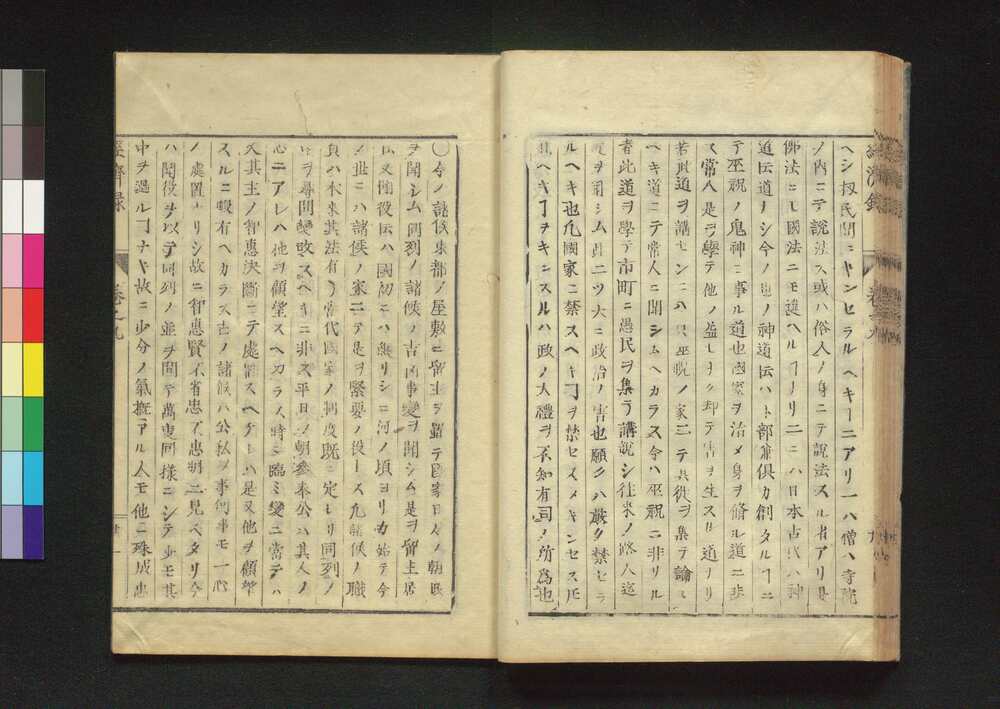 経済録
巻之九
ヘシ扨民間ニキンセラルヘキ一ニアリ一ハ僧ハ寺院
ノ内ニテ説法ス或ハ俗人ノ身ニテ説法スル者アリ是
佛法ニモ國法ニモ違ヘルヿナリ二ニハ日本古代ハ神
道伝道ナシ今ノ世ノ神道伝ハト部兼倶カ創タルヿニ
テ巫祝ノ鬼神ニ事ル道也國家ヲ治メ身ヲ脩ル道ニ非
ス常人是ヲ學テ他ノ益ナク却テ害ヲ生スル道ナリ
若此道ヲ講センニハ只巫祝ノ家ニテ其徒ヲ集テ論ス
ヘキ道ニテ常人ニ聞シムヘカラス今ハ巫祝ニ非サル
者此道ヲ學テ市町ニ愚民ヲ集テ講説シ往来ノ路人迄
是ヲ聞シム此二ツ大ニ政治ノ害也願クハ厳ク禁セラ
ルヘキ也凡國家ニ禁スヘキヿヲ禁セスメキンセス圧
ヘキヿヲキンスルハ政ノ大禮ヲ不知有司ノ所為也
〇今ノ諸侯東都ノ屋敷ニ留主ヲ置テ國家日々ノ
ヲ聞シム同列ノ諸侯ノ吉凶事變ヲ聞シム是ヲ留主居
又聞役伝ハ國初ニハ無リシニ河ノ頃ヨリカ始テ今
ノ世ニハ諸侯ノ家ニテ是ヲ緊要ノ役トス凡諸侯ノ職
負ハ本来其法有リ當代國家ノ制度既ニ定レリ同列ノ
ヲ尋問變改スヘキニ非ス平日ノ朝參奉公ハ其人ノ
心ニアレハ他ヲ顧望スヘカラス時ニ臨ミ變ニ當テハ
又其主ノ智惠決斷ニテ處置スヘケレハ是又他ヲ顧望
スルニ暇有ヘカラス古ノ諸侯ハ公私ノ事何事モ一心
ノ處置ナリシ故ニ智惠賢不省忠不忠明ニ見ヘタリ今
ハ聞役ヲ以テ同列ノ並ヲ聞テ萬叓同様ニシテ少モ其
中ヲ過ルヿナキ故ニ少分ノ氣概アル人モ他ニ殊成忠
経済録
巻之九